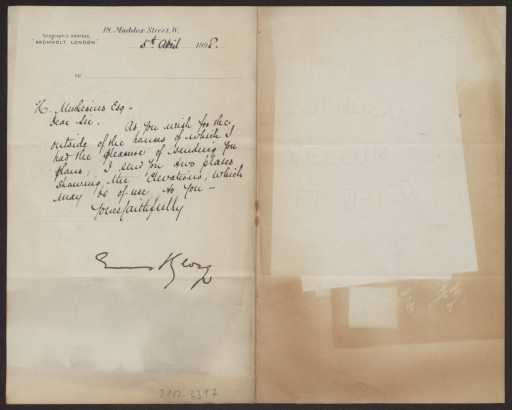 18, Maddox Street, W.
Telegraphic Address,
"ARCHIBOLT, LONDON."
5th April 1898.
TO
H. Muthesius Esq –
Dear Sir. As you wish for the
outside of the houses of which I
had the pleasure of sending you
plans, I send you two plates
shewing the Elevations, which
may be of use to you –
Yours faithfully
Ernest George